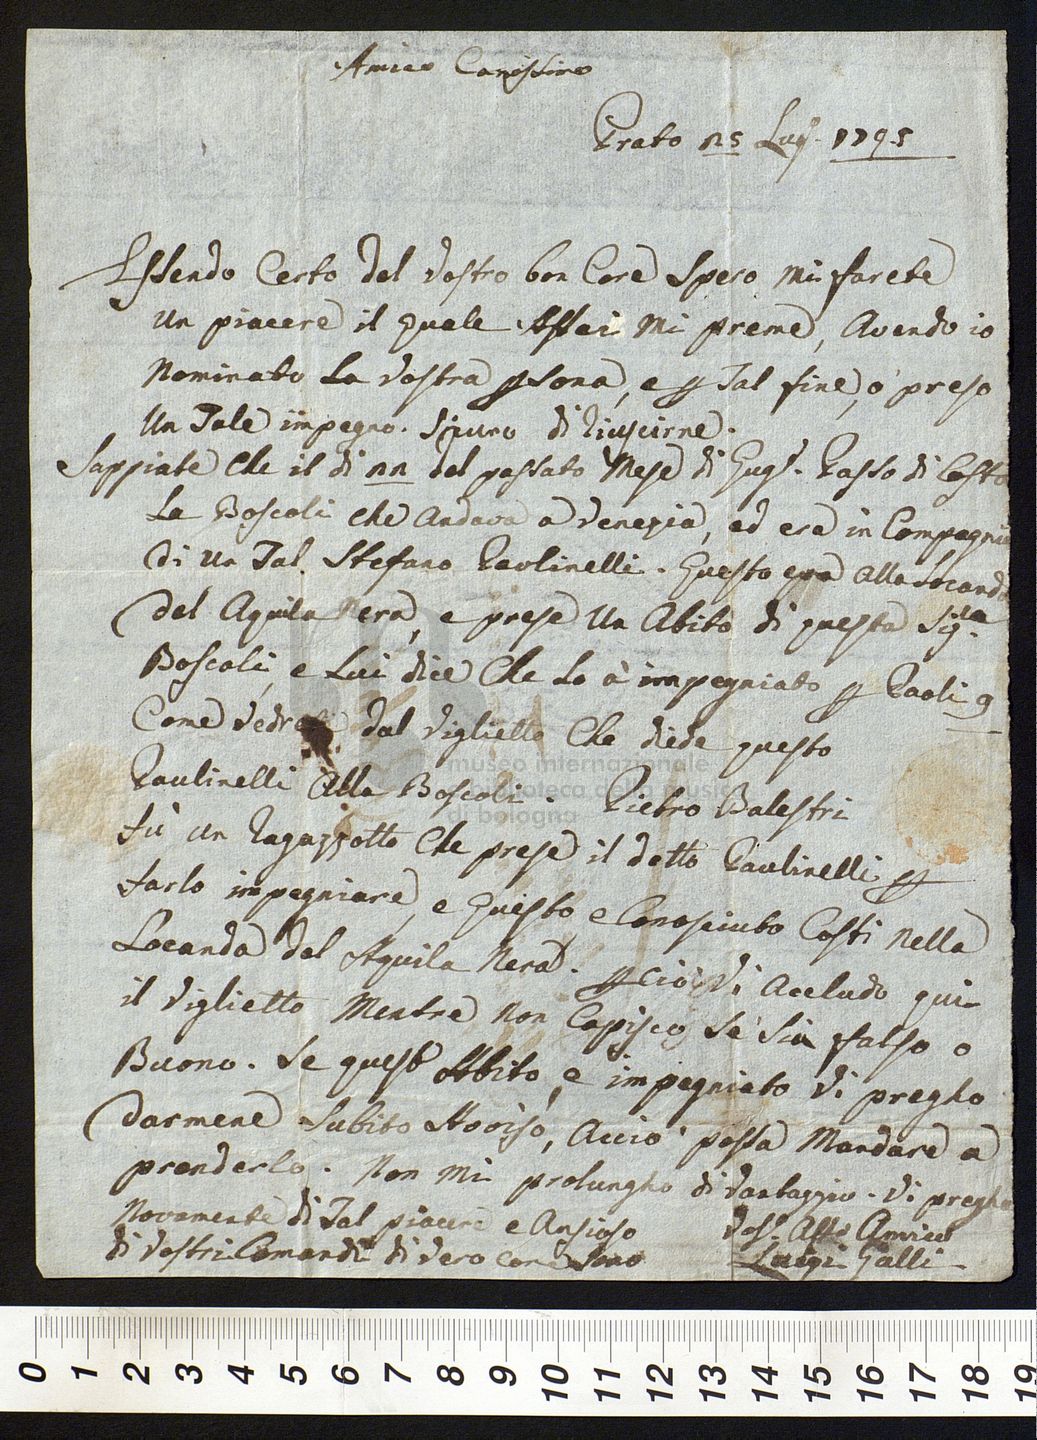 Amico Carissimo
Prato 15 Lug. 1795
Essendo Certo del vostro bon Core Spero mi farete
un piacere il quale Assai mi preme, Avendo io
Nominato La vostra psona, e p Tal fine, ò preso
Un Tale impegno. Sicuro di riuscirne.
Sappiate che il dì 11 del passato Mese di Giug. Passò di Costà
La Boscoli che Andava a Venezia, ed era in Compagnia
di un Tal. Stefano Paulinelli. Questo era Alla Locanda
del Aquila Nera, e prese Un Abito di questa Sig.ra
Boscoli, e Lui dice Che Lo à impegniato p Paoli 9
Come Vedrete dal Viglietto Che diede questo
Paulinelli Alla Boscoli. Pietro Balestri
fù un ragazzotto Che prese il detto Paulinelli p
farlo impegniare, e Questo e Conosciuto Costì nella
Locanda del Aquila Nera. p ciò Vi Acludo qui
il Viglietto Mentre Non Capisco, Se Sia falso o
Buono. Se quest Abito, e impegniato vi pregho
darmene Subito Aviso, Acciò possa Mandare a
prenderlo. Non Mi prolungho di vantaggio. Vi pregho
Novamente di Tal piacere e Ansioso
di vostri Comandi di vero core Sono
Vos. Affo Amico
Luigi Galli
museo internazionale
e biblioteca della musica
di bologna
0 1 2 3 4 5 6 7 8 9 10 11 12 13 14 15 16 17 18 19